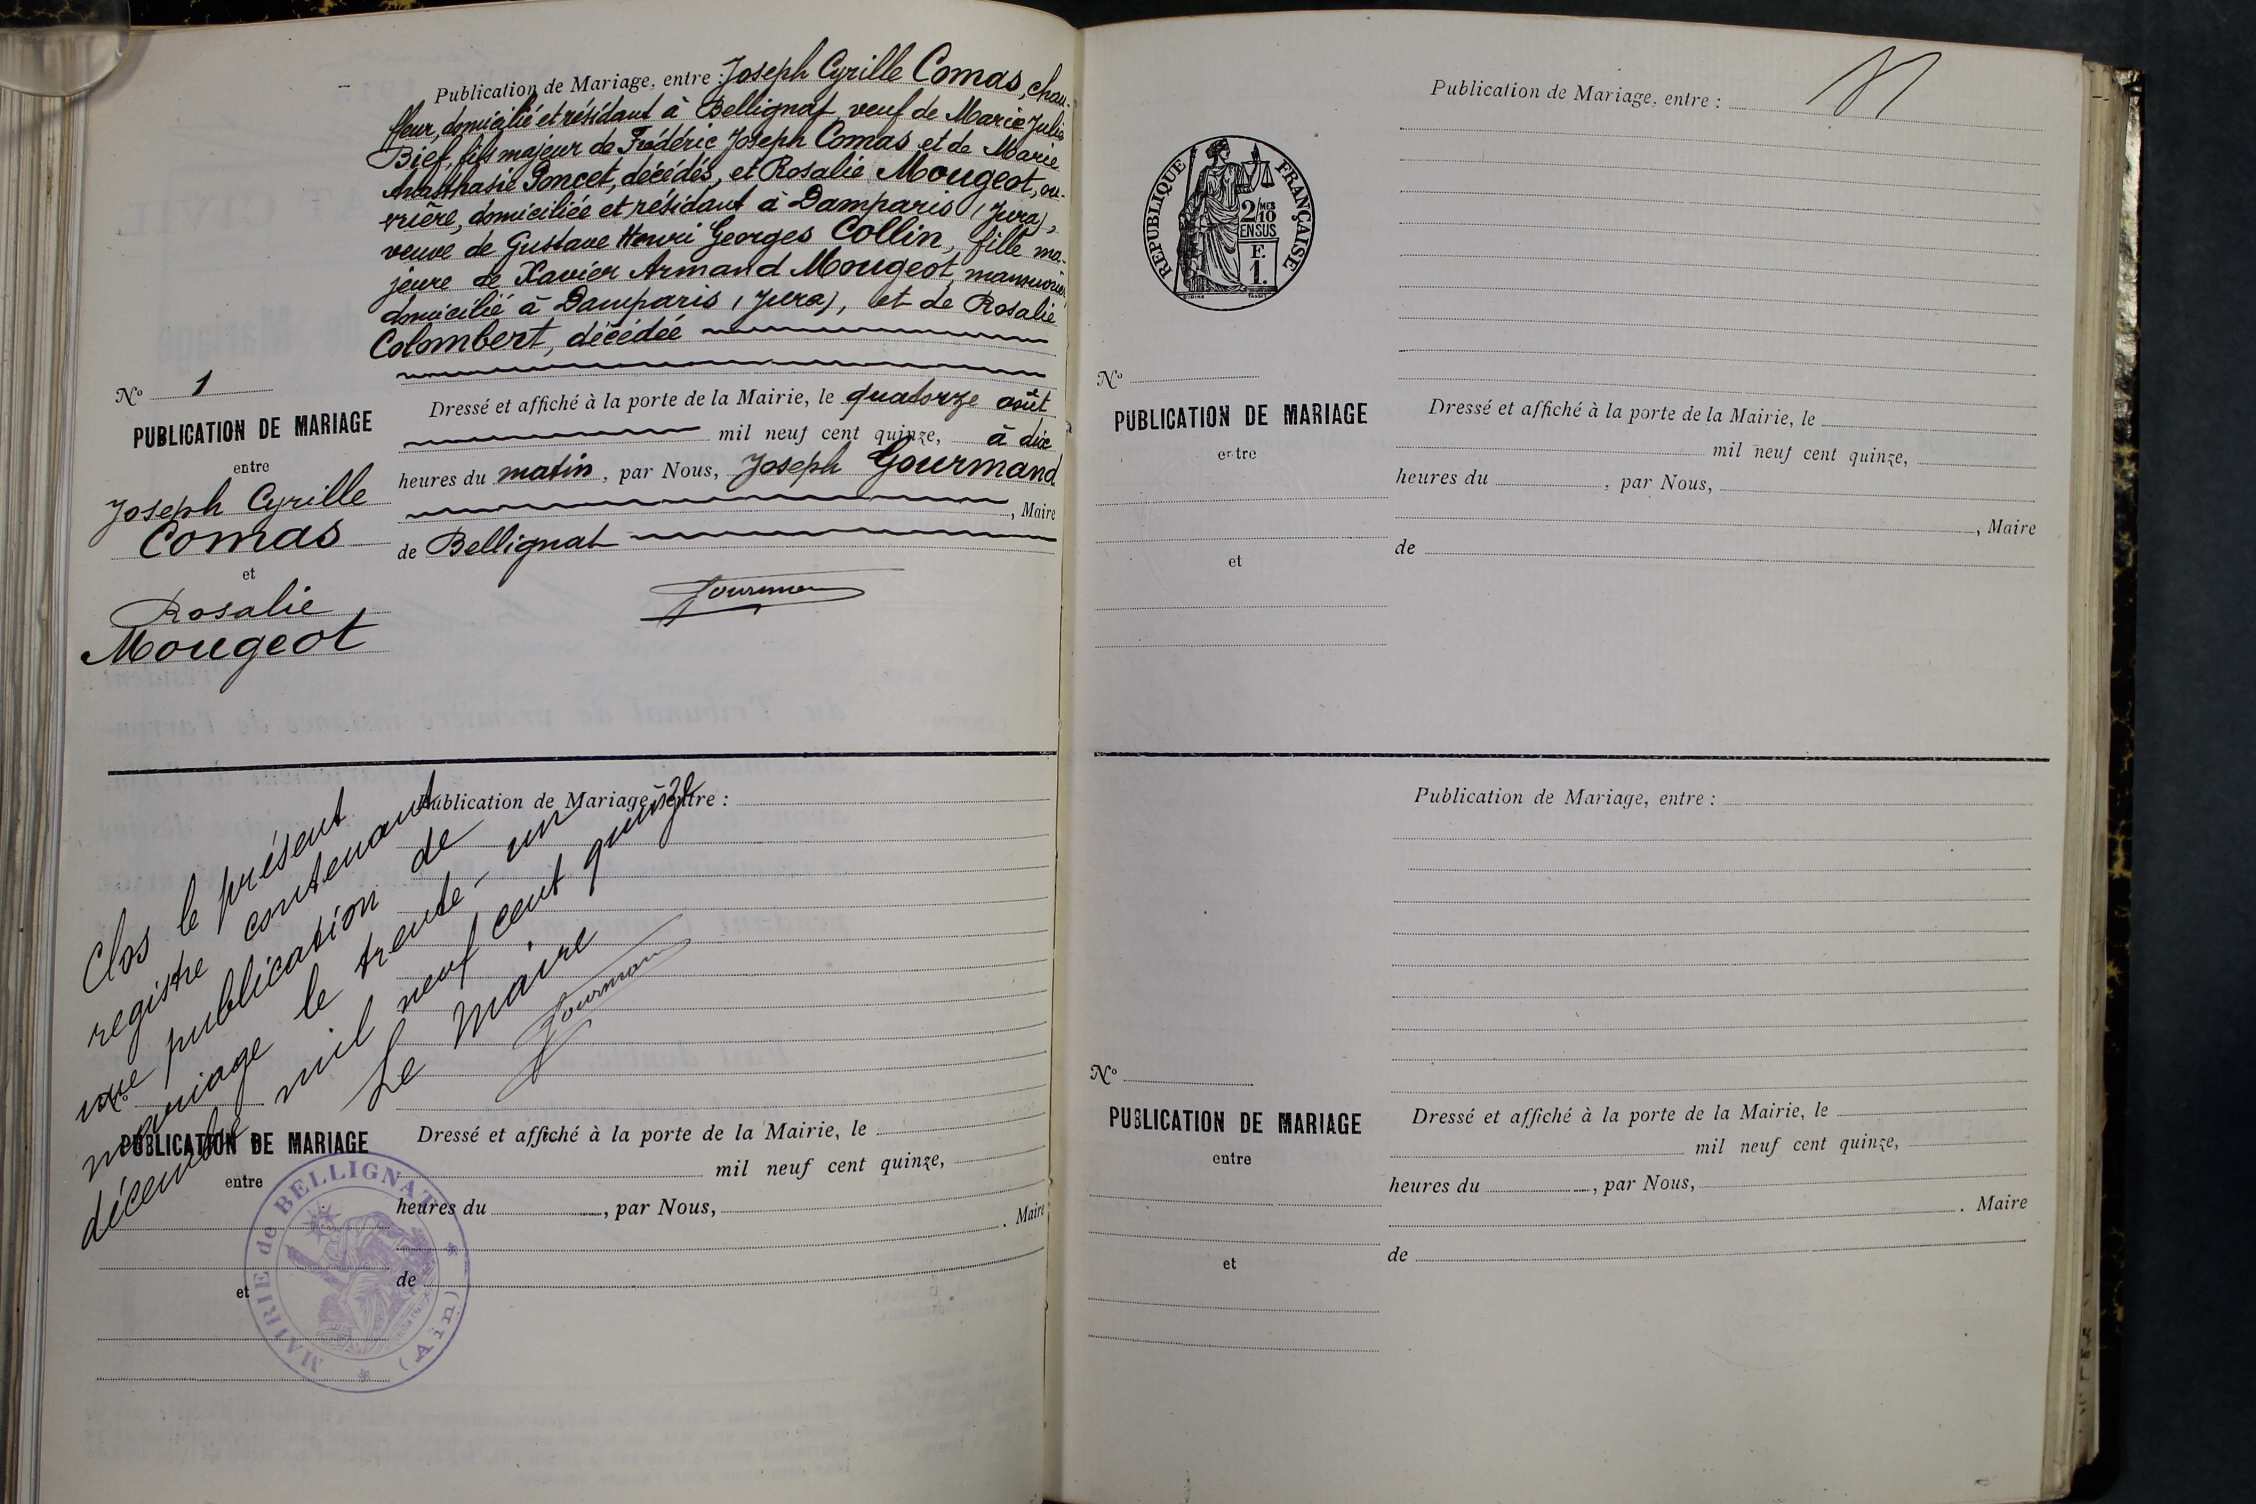 Publication de Mariage, entre : Joseph Cyrille Comas, chau-
ffeur, domicilié et résidant à Bellignat, veuf de Marie Julie
Bief, fils majeur de Frédéric Joseph Comas et de Marie
Anasthasie Poncet, décédés, et Rosalie Mougeot, ou-
vrière, domiciliée et résidant à Damparis (Jura),
veuve de Gustave Henri Georges Collin, fille ma-
jeure de Xavier Armand Mougeot, manouvrier
domicilié à Damparis (Jura), et de Rosalie
Colombert, décédée
Nº 1
PUBLICATION DE MARIAGE
entre
Joseph Cyrille
Comas
et
Rosalie
Mougeot
Dressé et affiché à la porte de la Mairie, le quatorze août
mil neuf cent quinze, à dix
heures du matin, par Nous, Joseph Gourmand
, Maire
de Bellignat
Gourmand
Clos le présent
registre contenant
une publication de
mariage le trente-un
décembre mil neuf cent quinze
Le Maire
Gourmand
Publication de Mariage, entre :
Nº
PUBLICATION DE MARIAGE
entre
et
Dressé et affiché à la porte de la Mairie, le
mil neuf cent quinze,
heures du , par Nous,
. Maire
de
MAIRIE de BELLIGNAT
(Ain)
Publication de Mariage, entre :
REPUBLIQUE FRANÇAISE
2/10 MES
EN SUS
F.
1.
Nº
PUBLICATION DE MARIAGE
entre
et
Dressé et affiché à la porte de la Mairie, le
mil neuf cent quinze,
heures du , par Nous,
, Maire
de
Publication de Mariage, entre :
Nº
PUBLICATION DE MARIAGE
entre
et
Dressé et affiché à la porte de la Mairie, le
mil neuf cent quinze,
heures du , par Nous,
. Maire
de